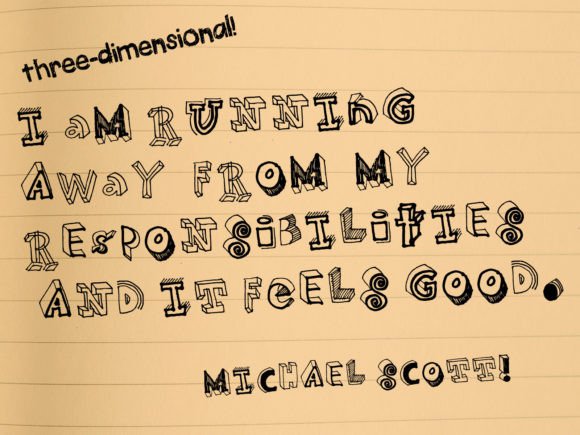 three-dimensional!
I aM RUNNING
AWaY FROM MY
RESPONSiBILitIES
AND IT FeELS GOOD.
MICHAEL SCOTT!